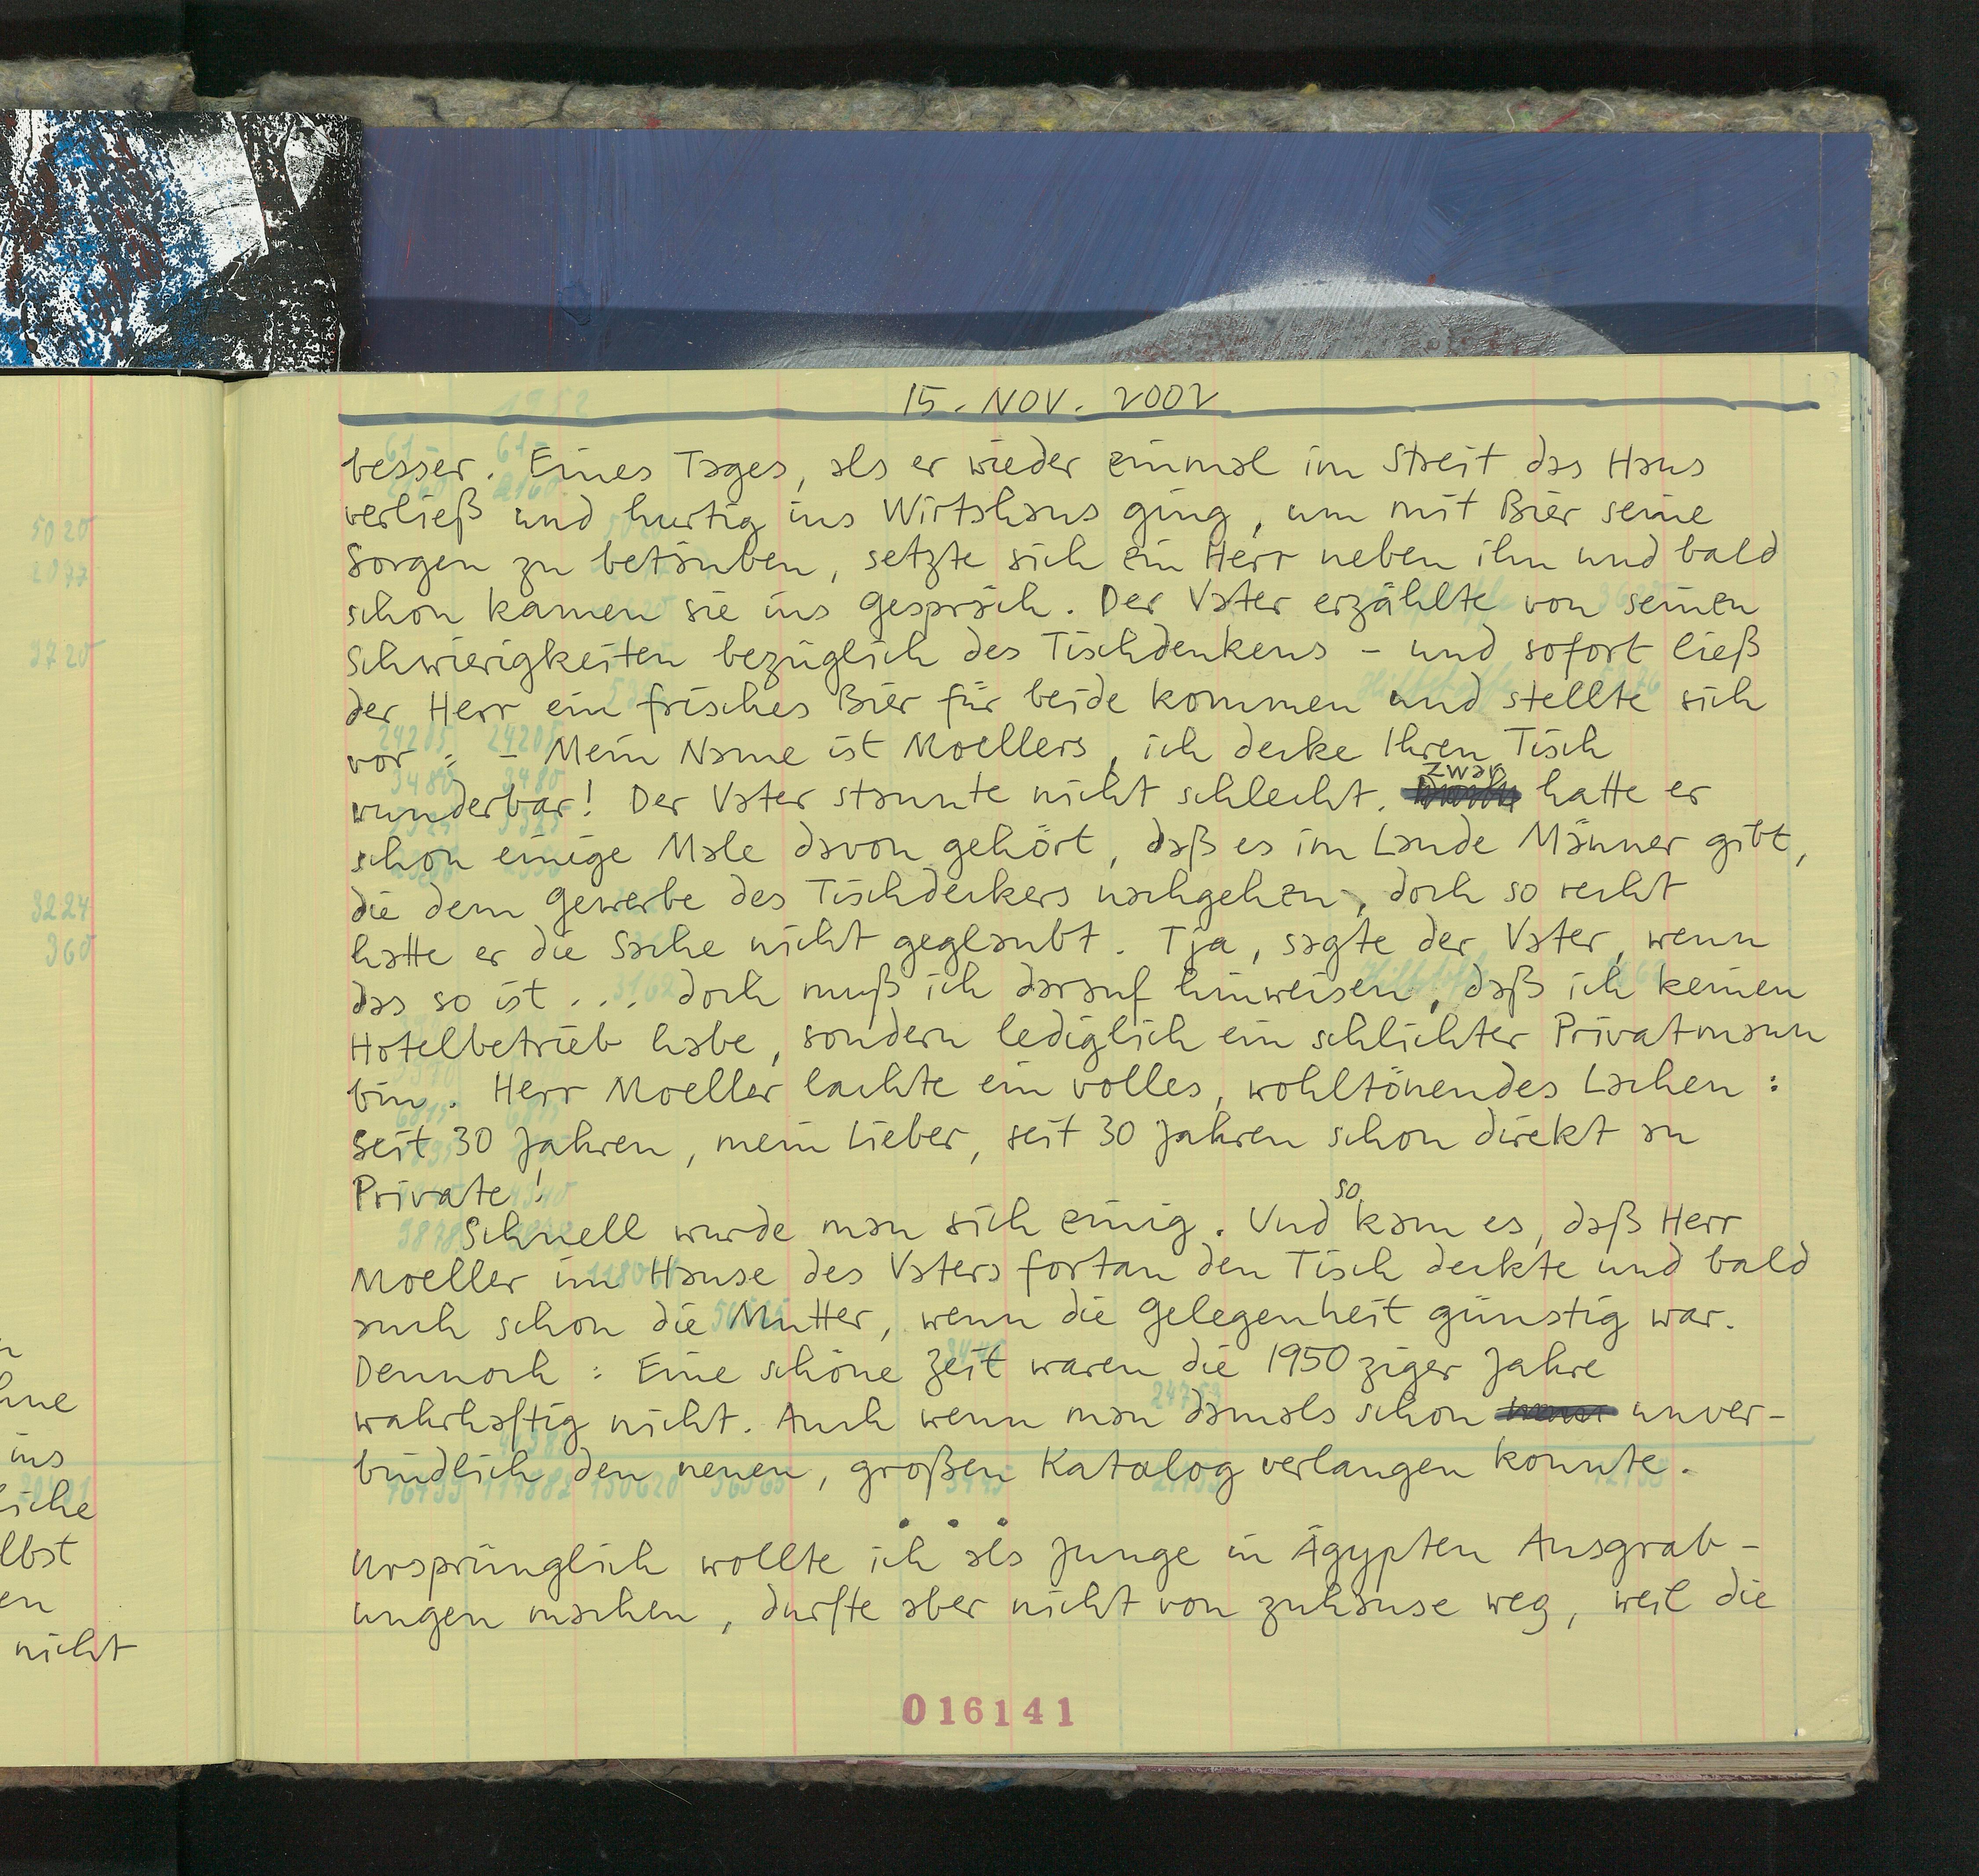 15. NOV. 2002
besser. Eines Tages, als er wieder einmal im Streit das Haus
verließ und hurtig ins Wirtshaus ging, um mit Bier seine
Sorgen zu betäuben, setzte sich ein Herr neben ihn und bald
schon kamen sie ins Gespräch. Der Vater erzählte von seinen
Schwierigkeiten bezüglich des Tischdenkens – und sofort ließ
der Herr ein frisches Bier für beide kommen und stellte sich
vor : – Mein Name ist Moellers, ich decke Ihren Tisch
wunderbar! Der Vater staunte nicht schlecht. zwar hatte er
schon einige Male davon gehört, daß es im Lande Männer gibt,
die dem Gewerbe des Tischdeckers nachgehen, doch so recht
hatte er die Sache nicht geglaubt. Tja, sagte der Vater, wenn
das so ist .... doch muß ich darauf hinweisen, daß ich keinen
Hotelbetrieb habe, sondern lediglich ein schlichter Privatmann
bin. Herr Moeller lachte ein volles, wohltönendes Lachen :
Seit 30 Jahren, mein Lieber, seit 30 Jahren schon direkt an
Private!
Schnell wurde man sich einig. Und so kam es, daß Herr
Moeller im Hause des Vaters fortan den Tisch deckte und bald
auch schon die Mutter, wenn die Gelegenheit günstig war.
Dennoch : Eine schöne Zeit waren die 1950ziger Jahre
wahrhaftig nicht. Auch wenn man damals schon unver-
bindlich den neuen, großen Katalog verlangen konnte.
. . .
Ursprünglich wollte ich als Junge in Ägypten Ausgrab-
ungen machen, durfte aber nicht von zuhause weg, weil die
016141
5020
3720
3224
360
ins
nicht